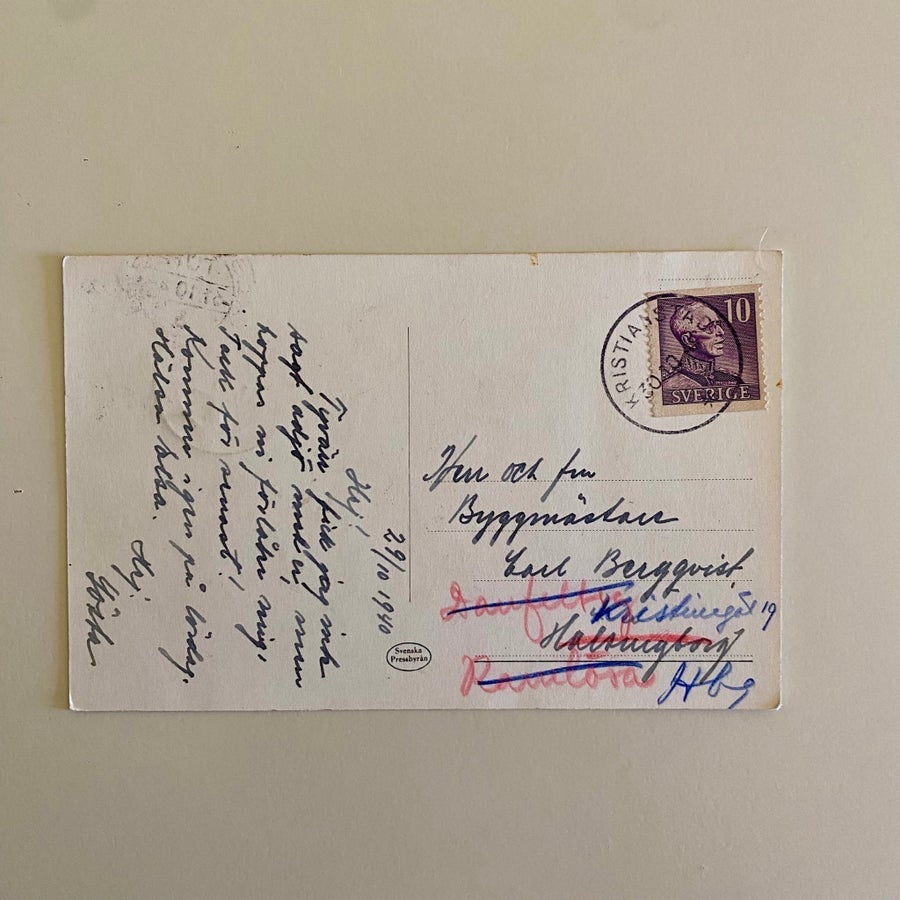 29/10 1940
Hej!
Tyvärr fick jag inte
sagt adjö med er, men
hoppas ni förlåter mig,
Tack för senast!
Kommer igen på lördag,
Hälsa alla.
Hej.
Gösta
Svenska
Pressbyrån
KRISTIANSTAD
30.10.40
10
SVERIGE
Herr och fru
Byggmästare
Carl Bergqvist
Kristinegat 19
Hälsingborg
Ramlösa
Hbg
31.10.40